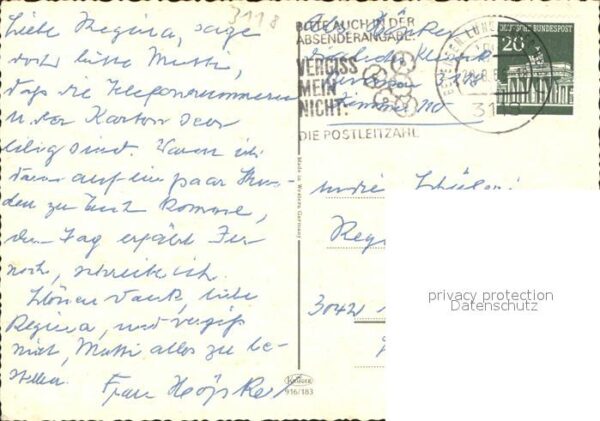 3118
Liebe Regina, sage
doch bitte Mutti,
daß die Telefonnummern
u. der Karton sehr
eilig sind. Wann ich
dann auf ein paar Stun-
den zu Euch komme,
den Tag erfährt Ihr
noch, schreibe ich.
Schönen Dank, liebe
Regina, und vergiß
nicht, Mutti alles zu be-
stellen. Frau Höpker
BITTE AUCH IN DER
ABSENDERANGABE:
VERGISS
MEIN
NICHT:
DIE POSTLEITZAHL
3118
DEUTSCHE BUNDESPOST
20
Made in Western Germany
An die Schülerin
Reg
3042
Krüger
916/183
privacy protection
Datenschutz